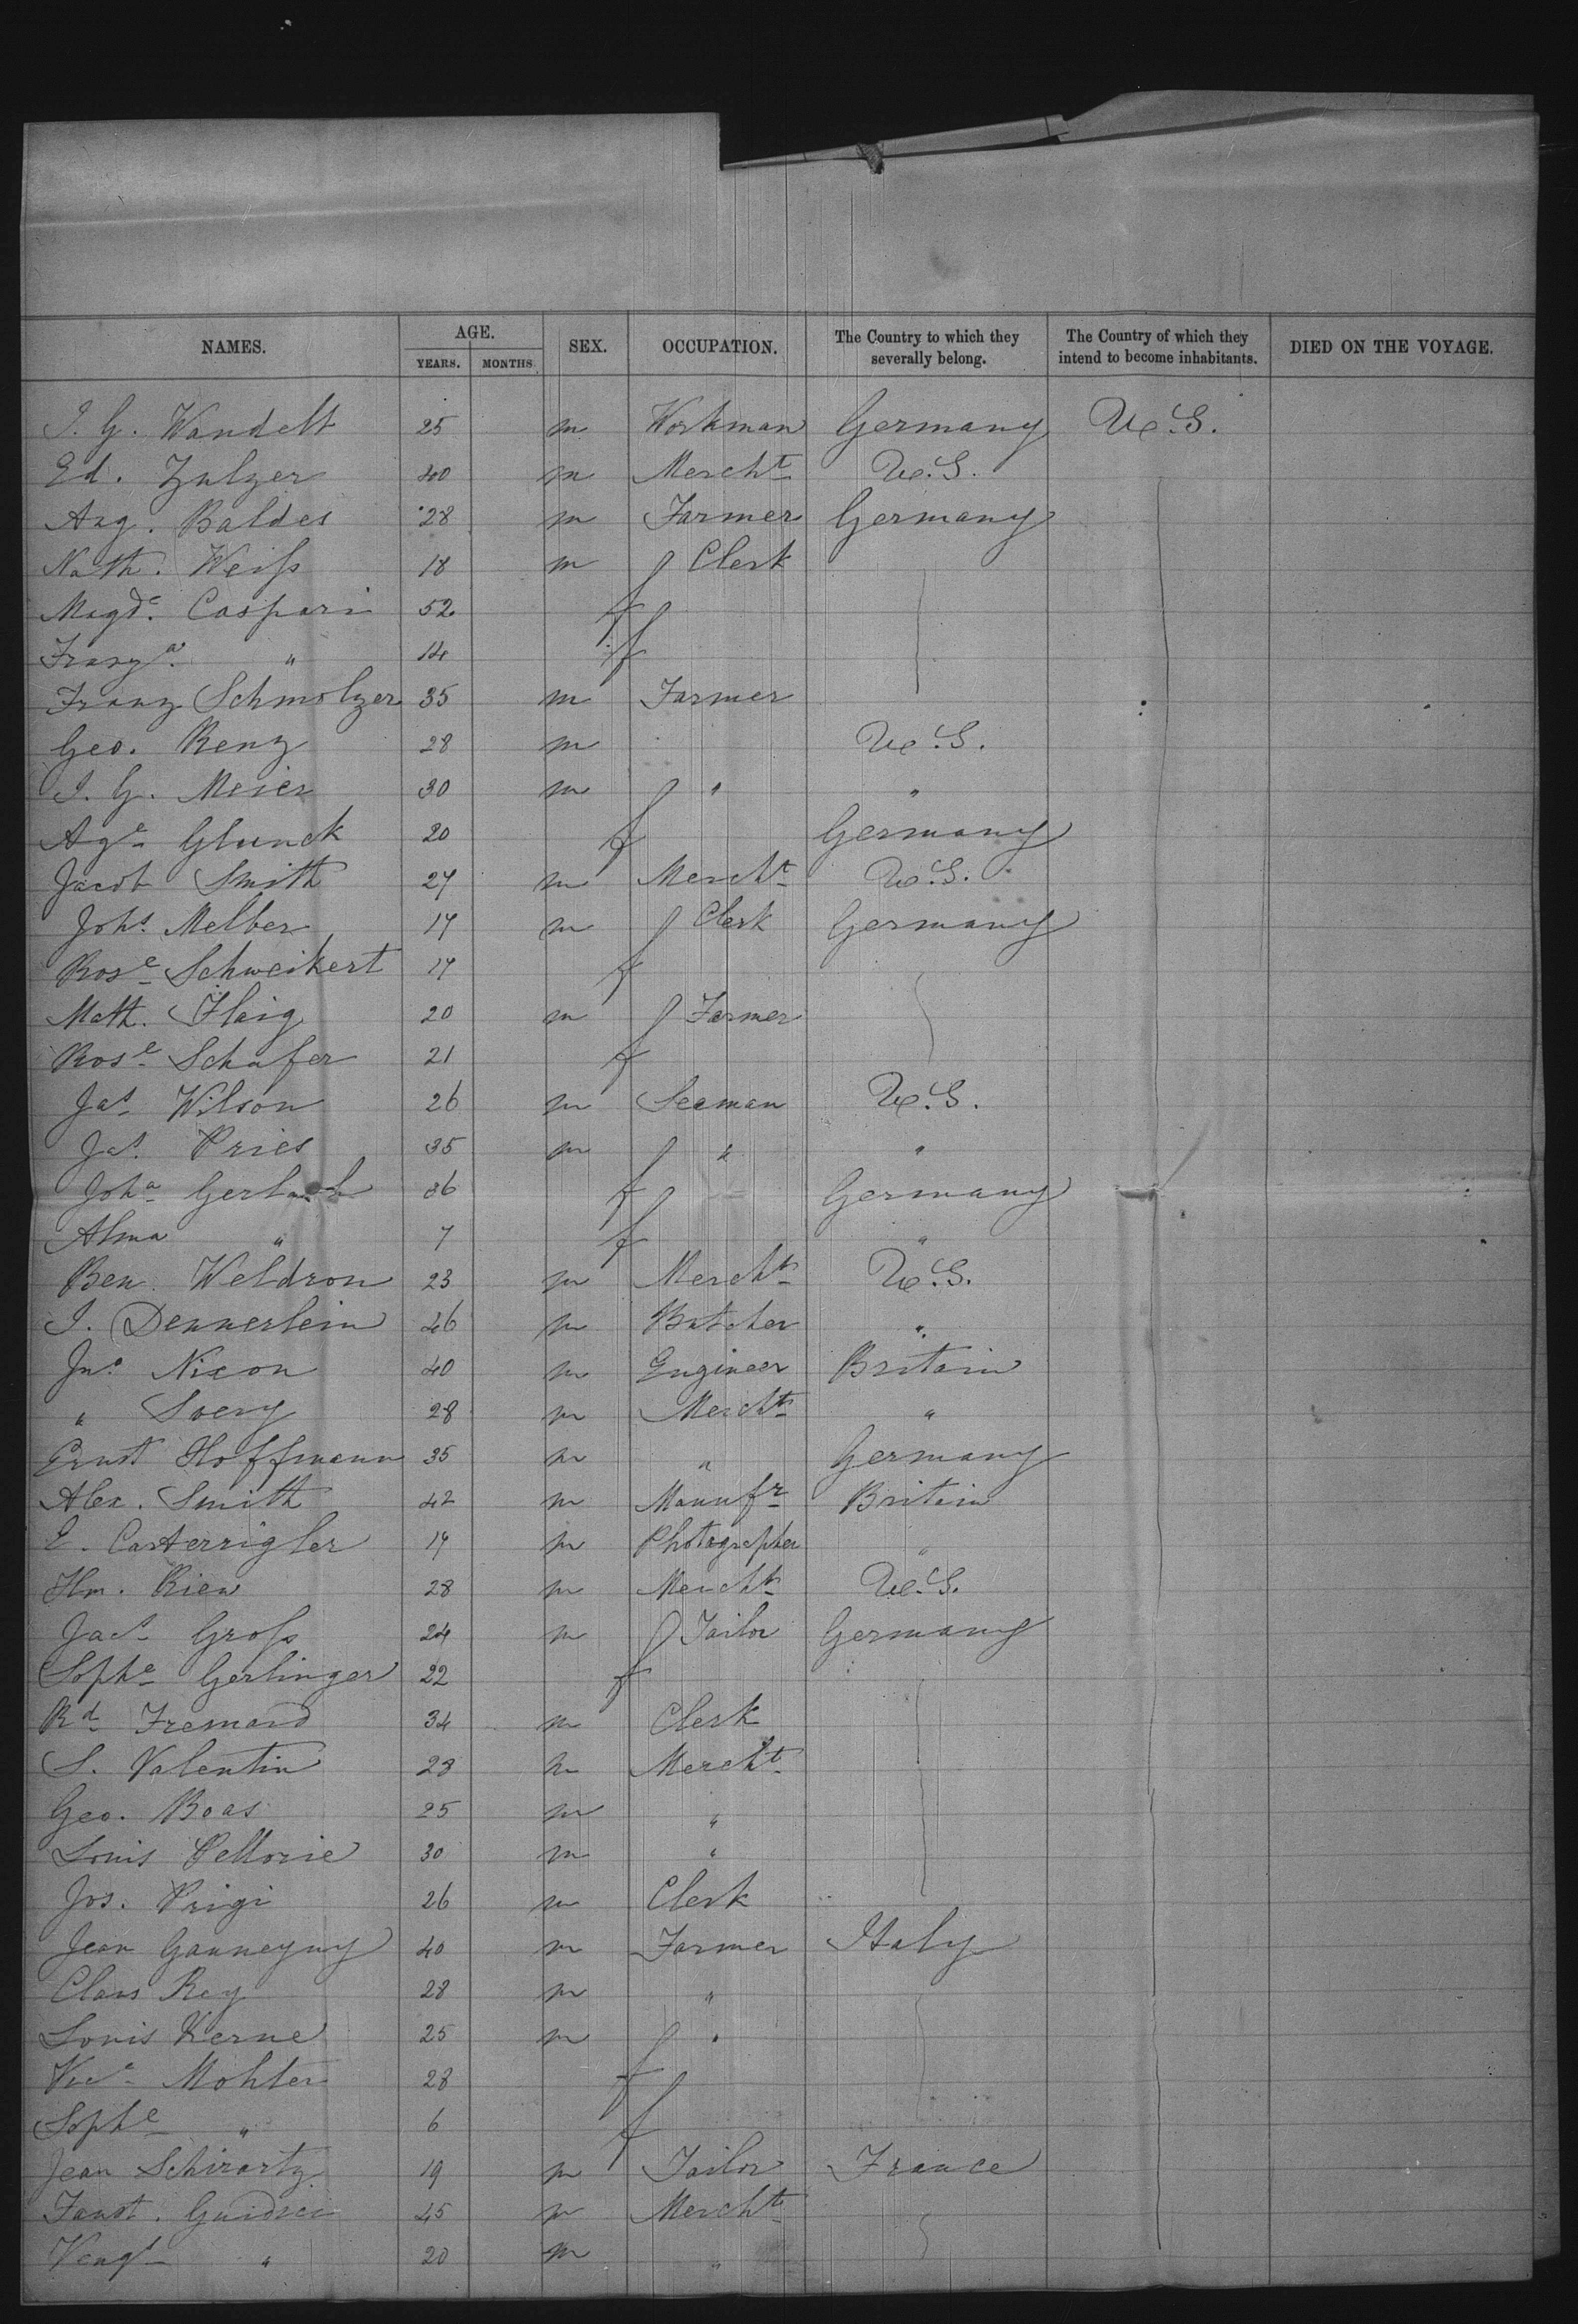 NAMES. AGE. YEARS. MONTHS. SEX. OCCUPATION. The Country to which they severally belong. The Country of which they intend to become inhabitants. DIED ON THE VOYAGE.
J. G. Wandelt 25 m Workman Germany U.S.
Ed. Zulzer 40 m Mercht U.S.
Aug. Baldes 28 m Farmer Germany
Nath. Weiss 18 m Clerk
Magde. Caspari 52 f
Franza. " 14 f
Franz Schmolzer 35 m Farmer
Geo. Renz 28 m U.S.
J. G. Meier 30 m " "
Age Glunck 20 f Germany
Jacob Smith 27 m Mercht U.S.
Johs Melber 17 m Clerk Germany
Rose Schweikert 17 f
Math. Flaig 20 m Farmer
Rose Schafer 21 f
Jas Wilson 26 m Seaman U.S.
Jas Pries 35 m " "
Joha Gerlach 36 f Germany
Alma " 7 f "
Ben Weldron 23 m Mercht U.S.
J. Dennerlein 46 m Butcher "
Jno Nixon 40 m Engineer Britain
" 28 m Mercht "
Ernst Hoffmann 35 m " Germany
Alex. Smith 42 m Manufr Britain
E. 17 m Photographer "
Hm. Rien 28 m Mercht U.S.
Jacb Gross 24 m Tailor Germany
Sophe Gerlinger 22 f
Rd Fremard 34 m Clerk
S. Valentin 28 m Mercht
Geo. Boas 25 m "
Louis 30 m "
Jos. Prigi 26 m Clerk
Jean 40 m Farmer Italy
Claus Rey 28 m "
Louis Kerne 25 m "
Mohler 28 f
Sophe " 6 f
Jean Schirartz 19 m Tailor France
Faust. 45 m Mercht
" 20 m "